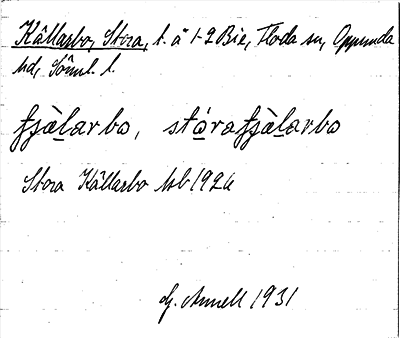 Källarbo, Stora, t. å 1-2 Bie, Floda sn, Oppunda
hd, Söml. l.
fşὰlarbo, stórafşὰlarbo
Stora Källarbo Jsb 1926
G. Annell 1931